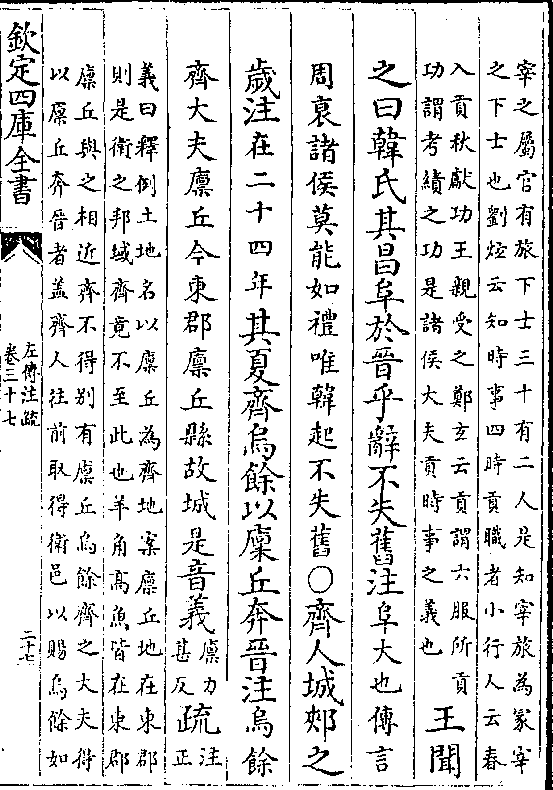 宰之屬官有旅下士三十有二人是知宰旅為冡宰
之下士也劉炫云知時事四時貢職者小行人云春
入貢秋獻功王親受之鄭玄云貢謂六服所貢
功謂考績之功是諸侯大夫貢時事之義也
王聞
之曰韓氏其昌阜於晉乎辭不失舊注阜大也傳言
周衰諸侯莫能如禮唯韓起不失舊○齊人城郟之
歲注在二十四年其夏齊烏餘以廩丘奔晉注烏餘
齊大夫廩丘今東郡廩丘縣故城是音義廩力
甚反
疏注
正
義曰釋例土地名以廩丘為齊地案廩丘地在東郡
則是衛之邦域齊竟不至此也羊角高魚皆在東郡
廩丘與之相近齊不得別有廩丘烏餘齊之大夫得
以廩丘奔晉者盖齊人往前取得衛邑以賜烏餘如
欽定四庫全書
左傳注疏
卷三十七
二十七